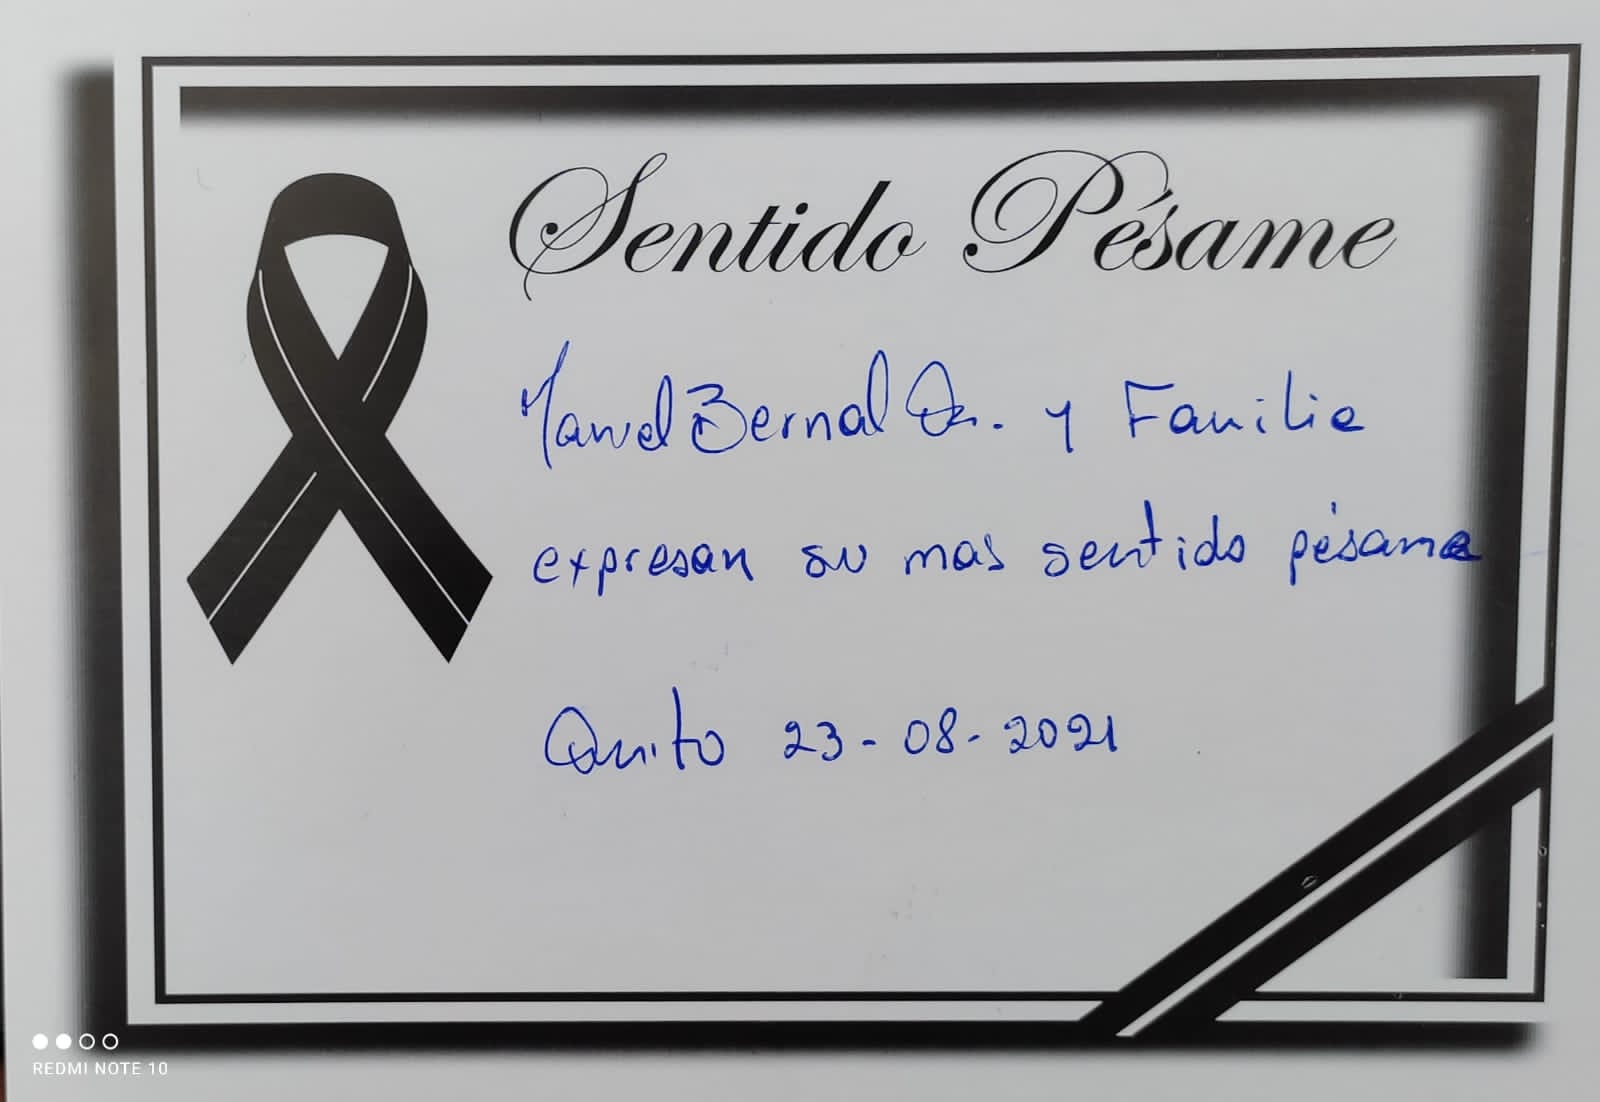 Sentido Pésame
Manuel Bernal y Familia
expresan su mas sentido pésame
Quito 23-08-2021
REDMI NOTE 10